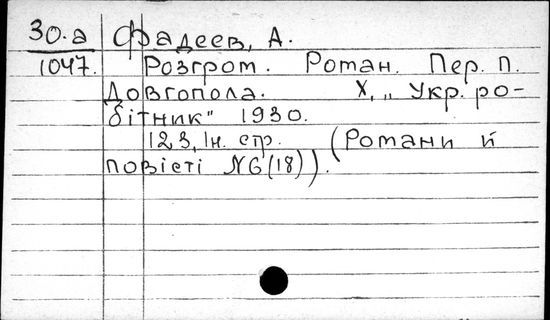 30.а Фадеев, А.
1047. Розгром. Роман. Пер. П.
Довгопола. Х, „Укр. ро-
бітник" 1930.
123, 1н. стр. (Романи й
повісті №6(18)).